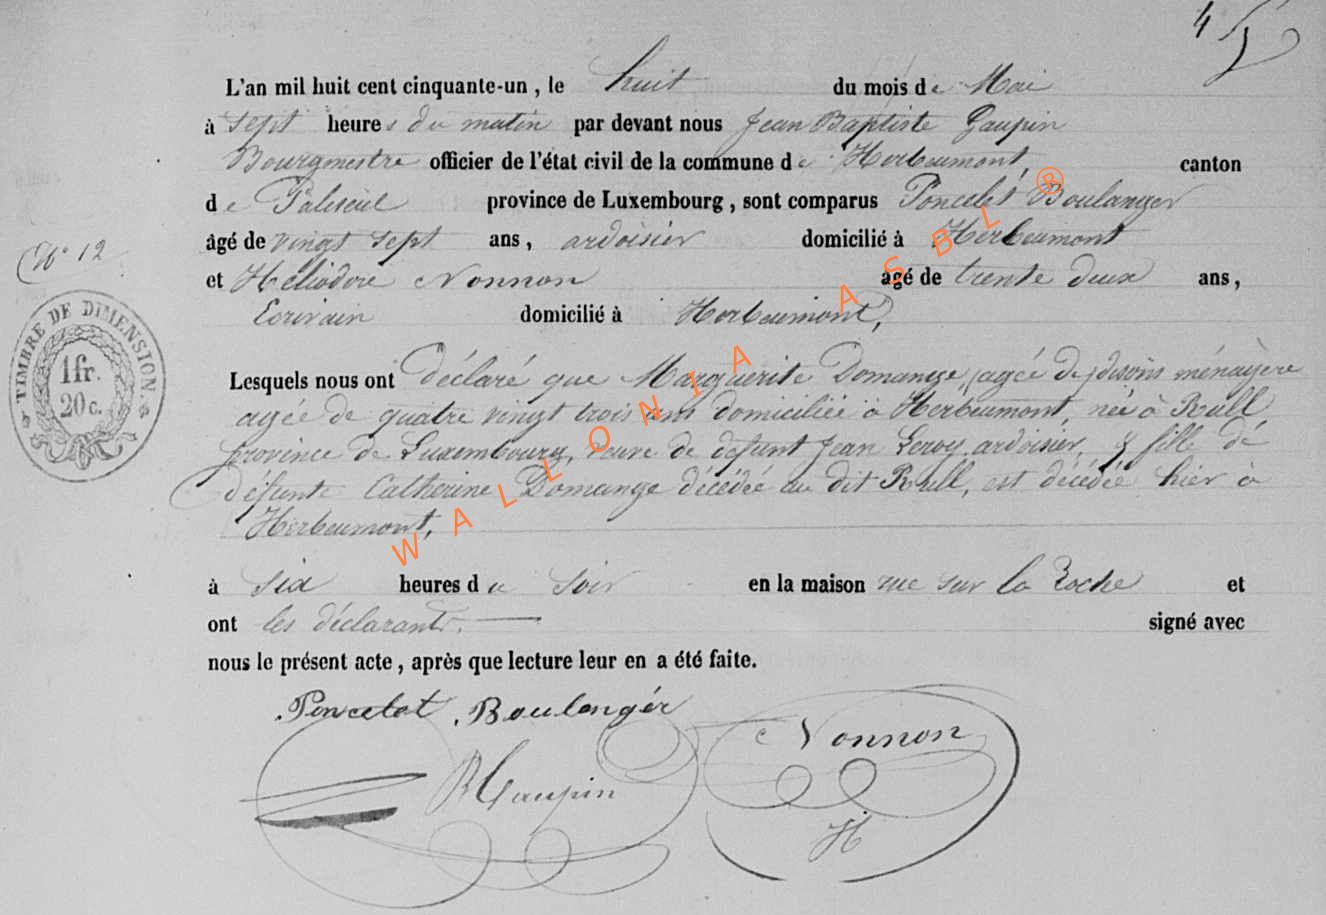 4
L'an mil huit cent cinquante-un, le huit du mois de Mai
à sept heures du matin par devant nous Jean Baptiste Gaupin
Bourgmestre officier de l'état civil de la commune de Herbeumont, canton
de Paliseul province de Luxembourg, sont comparus Poncelet Boulanger
âgé de vingt sept ans, ardoisier domicilié à Herbeumont
N° 12
et Héliodore Nonnon agé de trente deux ans,
Ecrivain domicilié à Herbeumont,
TIMBRE DE DIMENSION.
1fr.
20c.
Lesquels nous ont déclaré que Marguerite Domange, (agée de) disons ménagère
agée de quatre vingt trois ans domiciliée à Herbeumont, née à Rull
province de Luxembourg, veuve de défunt Jean Leroy ardoisier, & fille de
défunte Catherine Domange décédée au dit Rull, est décédée hier à
Herbeumont,
à six heures du soir en la maison rue sur la Roche et
ont les déclarants. signé avec
nous le présent acte, après que lecture leur en a été faite.
Poncelet Boulangér
Nonnon
Gaupin
H
WALLONIA ASBL ®